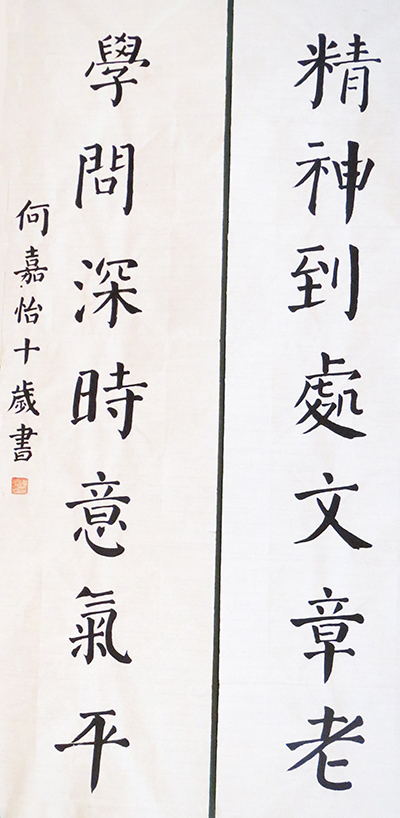 精神到處文章老
學問深時意氣平
何嘉怡十歲書